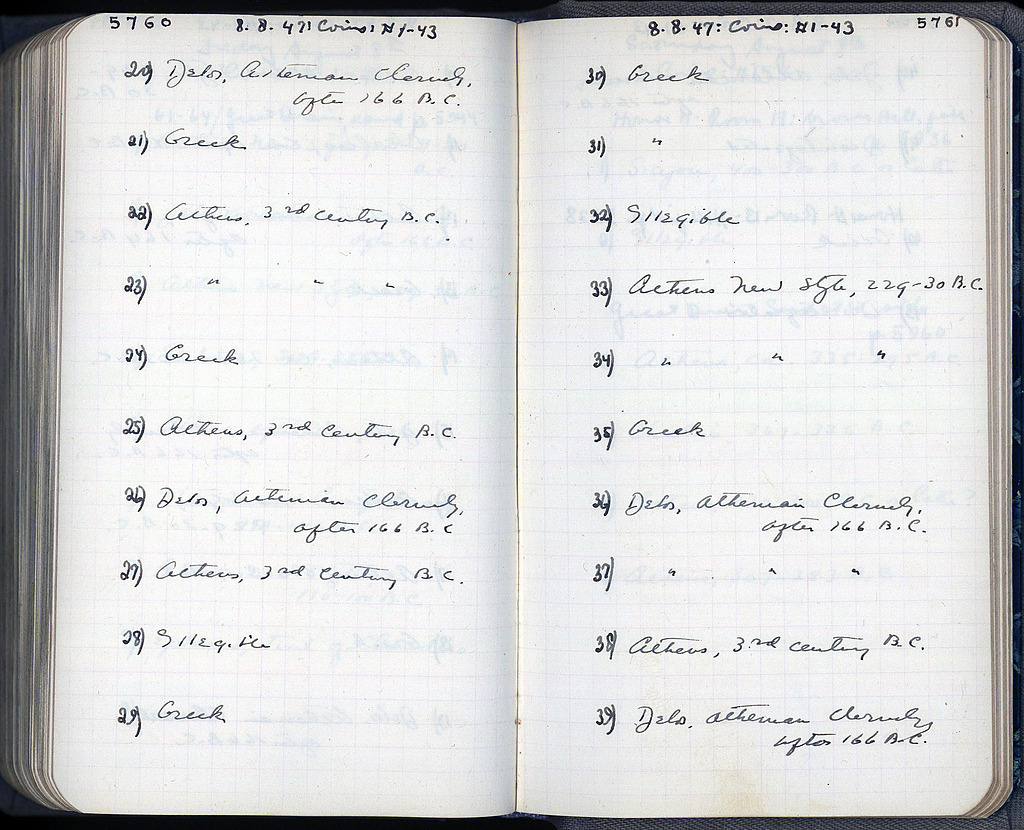 5760
8.8.47: Coins: #1-43
20) Delos, Athenian Cleruchy,
after 166 B.C.
21) Greek
22) Athens, 3rd century B.C.
23) " " "
24) Greek
25) Athens, 3rd century B.C.
26) Delos, Athenian Cleruchy,
after 166 B.C
27) Athens, 3rd century B.C.
28) Illegible
29) Greek
8.8.47: Coins: #1-43
5761
30) Greek
31) "
32) Illegible
33) Athens New Style, 229-30 B.C.
34) " " "
35) Greek
36) Delos, Athenian Cleruchy,
after 166 B.C.
37) " " "
38) Athens, 3rd century B.C.
39) Delos, Athenian Cleruchy,
after 166 B.C.